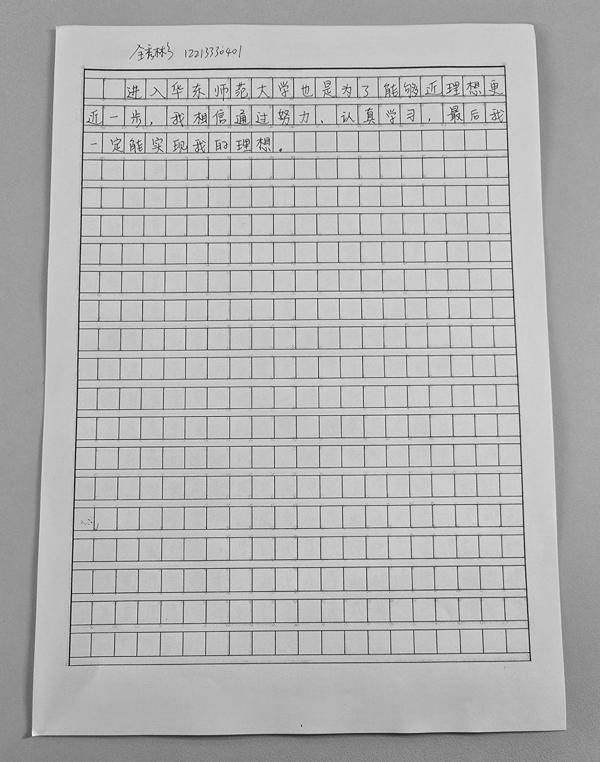 全秀彬 12213330401
进入华东师范大学也是为了能够近理想更
近一步，我相信通过努力、认真学习，最后我
一定能实现我的理想。